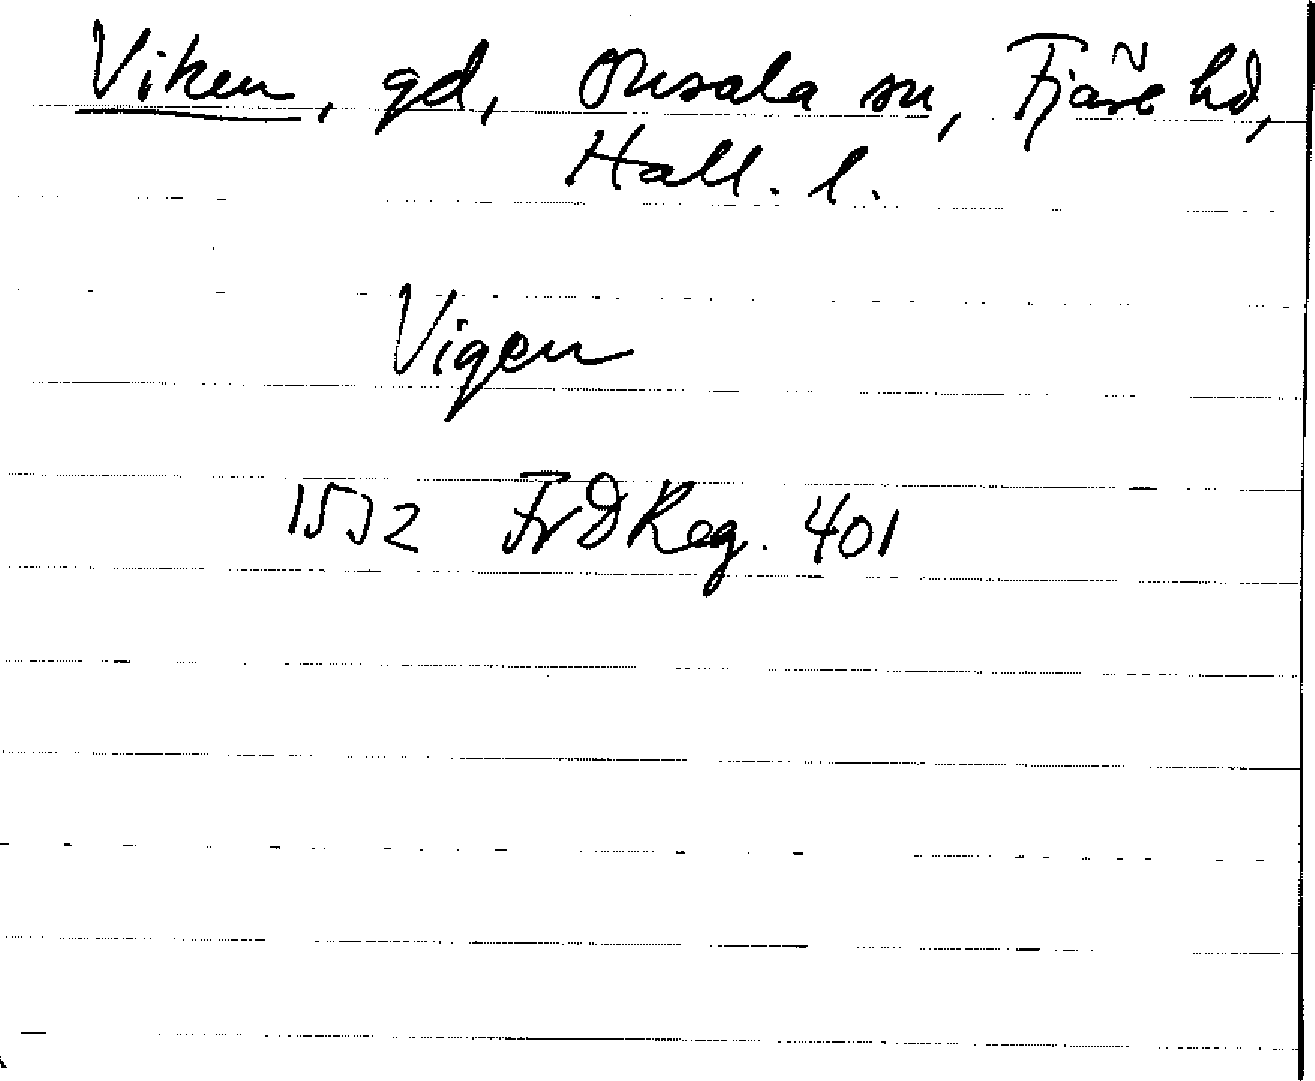 Viken, gd, Onsala sn, Fjäre hd,
Hall. l.
Vigen
1552 FrDReg. 401